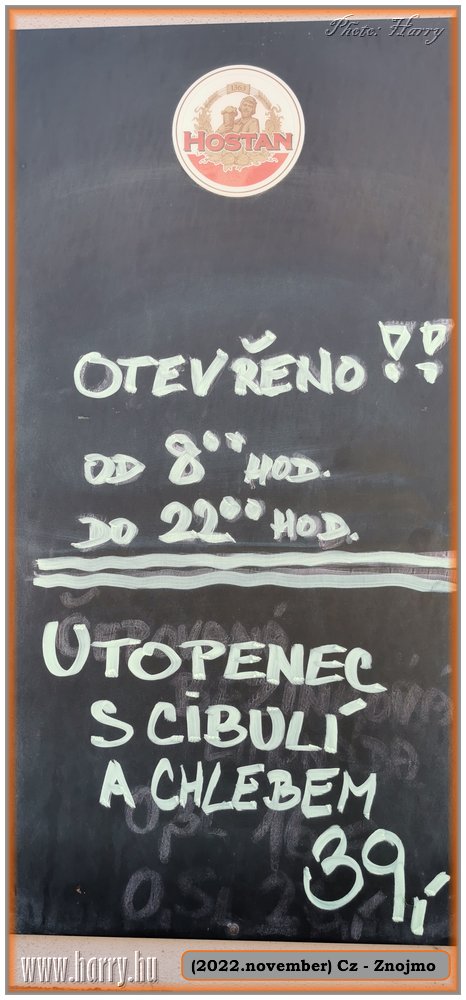 Photo: Harry
1363
HOSTAN
OTEVŘENO!!
OD 8⁰⁰ HOD.
DO 22⁰⁰ HOD.
UTOPENEC
S CIBULÍ
A CHLEBEM
39,-
www.horry.hu
(2022.november) Cz - Znojmo